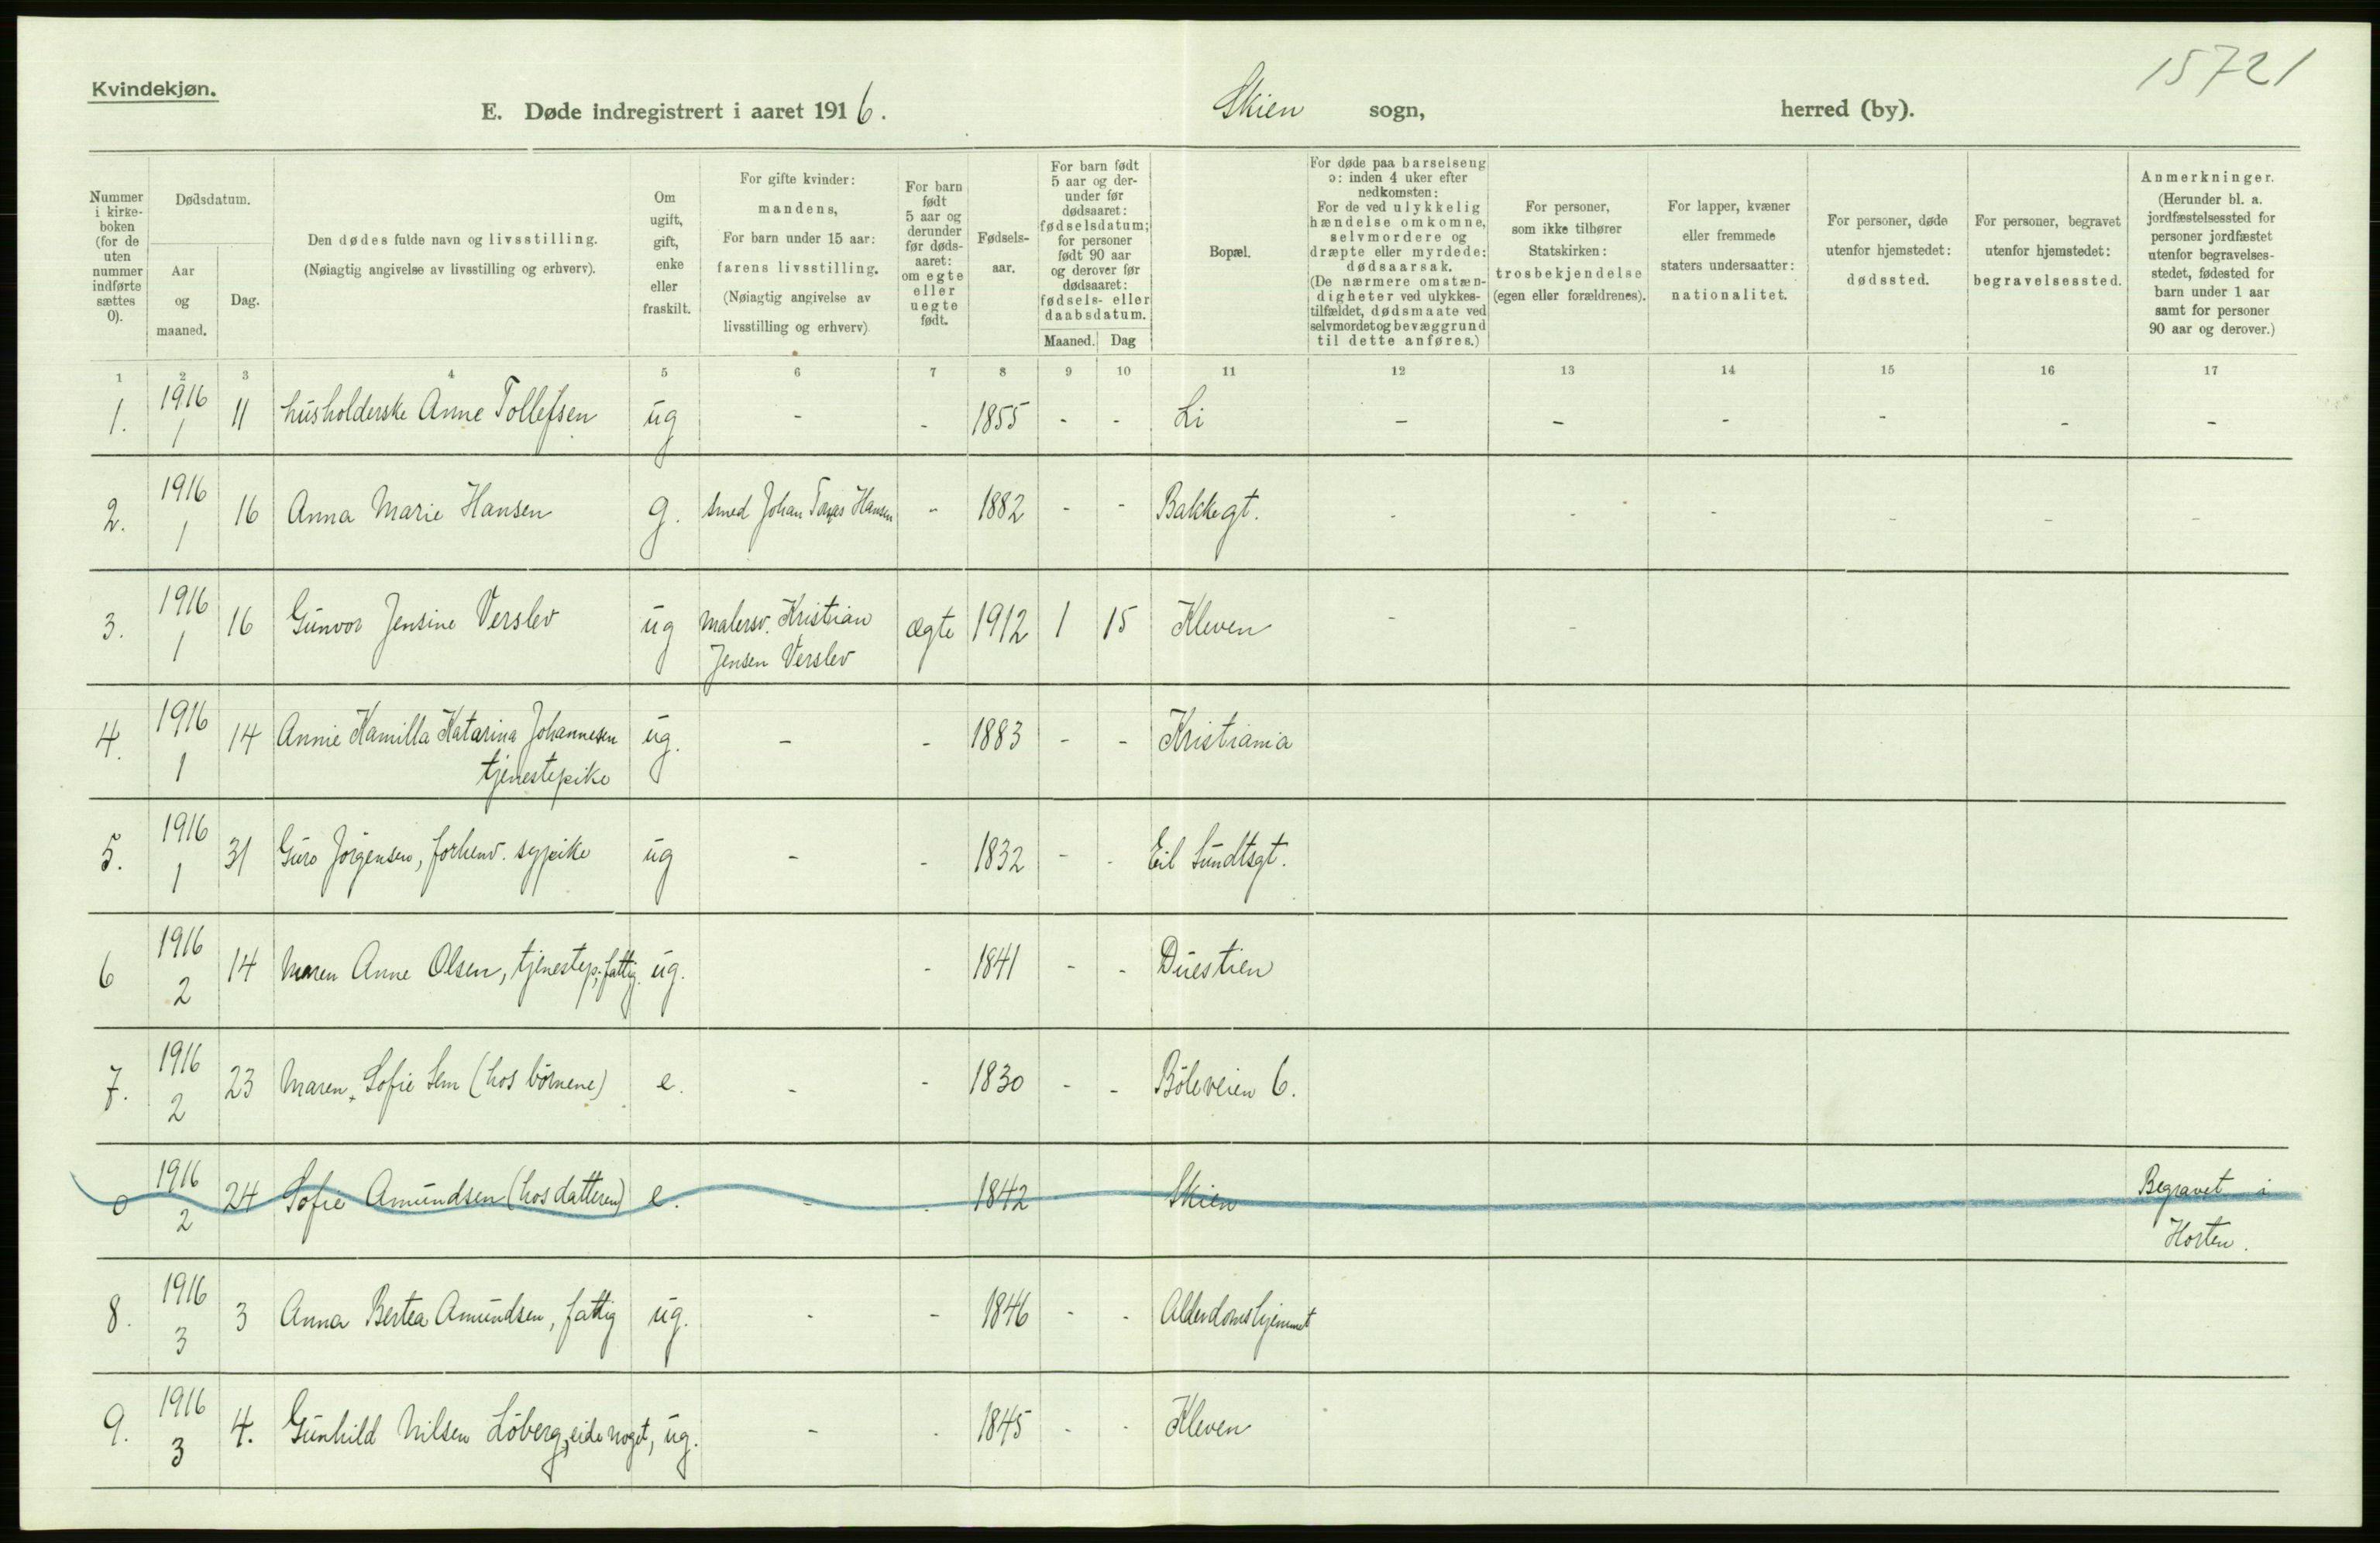 15721
Kvindekjøn.
E. Døde indregistrert i aaret 1916.
Skien sogn, herred (by).
Nummer i kirke- boken (for de uten nummer indførte sættes 0).
Dødsdatum.
Aar og maaned.
Dag.
Den dødes fulde navn og livsstilling.
(Nøiagtig angivelse av livsstilling og erhverv).
Om ugift, gift, enke eller fraskilt.
For gifte kvinder: mandens,
For barn under 15 aar: farens livsstilling.
(Nøiagtig angivelse av livsstilling og erhverv)
For barn født 5 aar og derunder før døds- aaret: om egte eller uegte født.
Fødsels- aar.
For barn født 5 aar og der- under før dødsaaret: fødselsdatum; for personer født 90 aar og derover før dødsaaret: fødsels- eller daabsdatum.
Maaned. Dag
Bopæl.
For døde paa barselseng ɔ: inden 4 uker efter nedkomsten:
For de ved ulykkelig hændelse omkomne, selvmordere og dræpte eller myrdede: dødsaarsak.
(De nærmere omstæn- digheter ved ulykkes- tilfældet, dødsmaate ved selvmordet og bevæggrund til dette anføres.)
For personer, som ikke tilhører Statskirken: trosbekjendelse (egen eller forældrenes).
For lapper, kvæner eller fremmede staters undersaatter: nationalitet.
For personer, døde utenfor hjemstedet: dødssted.
For personer, begravet utenfor hjemstedet: begravelsessted.
Anmerkninger.
(Herunder bl. a. jordfæstelsessted for personer jordfæstet utenfor begravelses- stedet, fødested for barn under 1 aar samt for personer 90 aar og derover.)
1 2 3 4 5 6 7 8 9 10 11 12 13 14 15 16 17
1. 1916 1 11 husholderske Anne Tollefsen ug - - 1855 - - Li - - - - - -
2. 1916 1 16 Anna Marie Hansen g. smed Johan Hansen - 1882 - - Bakkegt. - - - - - -
3. 1916 1 16 Gunvor Jensine Verslev ug malersv. Kristian
Jensen Verslev ægte 1912 1 15 Kleven - -
4. 1916 1 14 Annie Kamilla Katarina Johannesen
tjenestepike ug. - - 1883 - - Kristiania
5. 1916 1 31 Guro Jörgensen, forhenv. sypike ug - - 1832 - - Eil Sundtsgt.
6 1916 2 14 Maren Anne Olsen, tjenestep; fattig. ug. - 1841 - - Duestien
7. 1916 2 23 Maren Sofie Sem (hos börnene) e. - - 1830 - - Böleveien 6.
0 1916 2 24 Sofie Amundsen (hos datteren) e. - - 1842 Skien Begravet i
Horten.
8. 1916 3 3 Anna Bertea Amundsen, fattig ug. - - 1846 - - Alderdomshjemmet
9. 1916 3 4. Gunhild Nilsen Löberg, eide noget, ug. - - 1845 - - Kleven